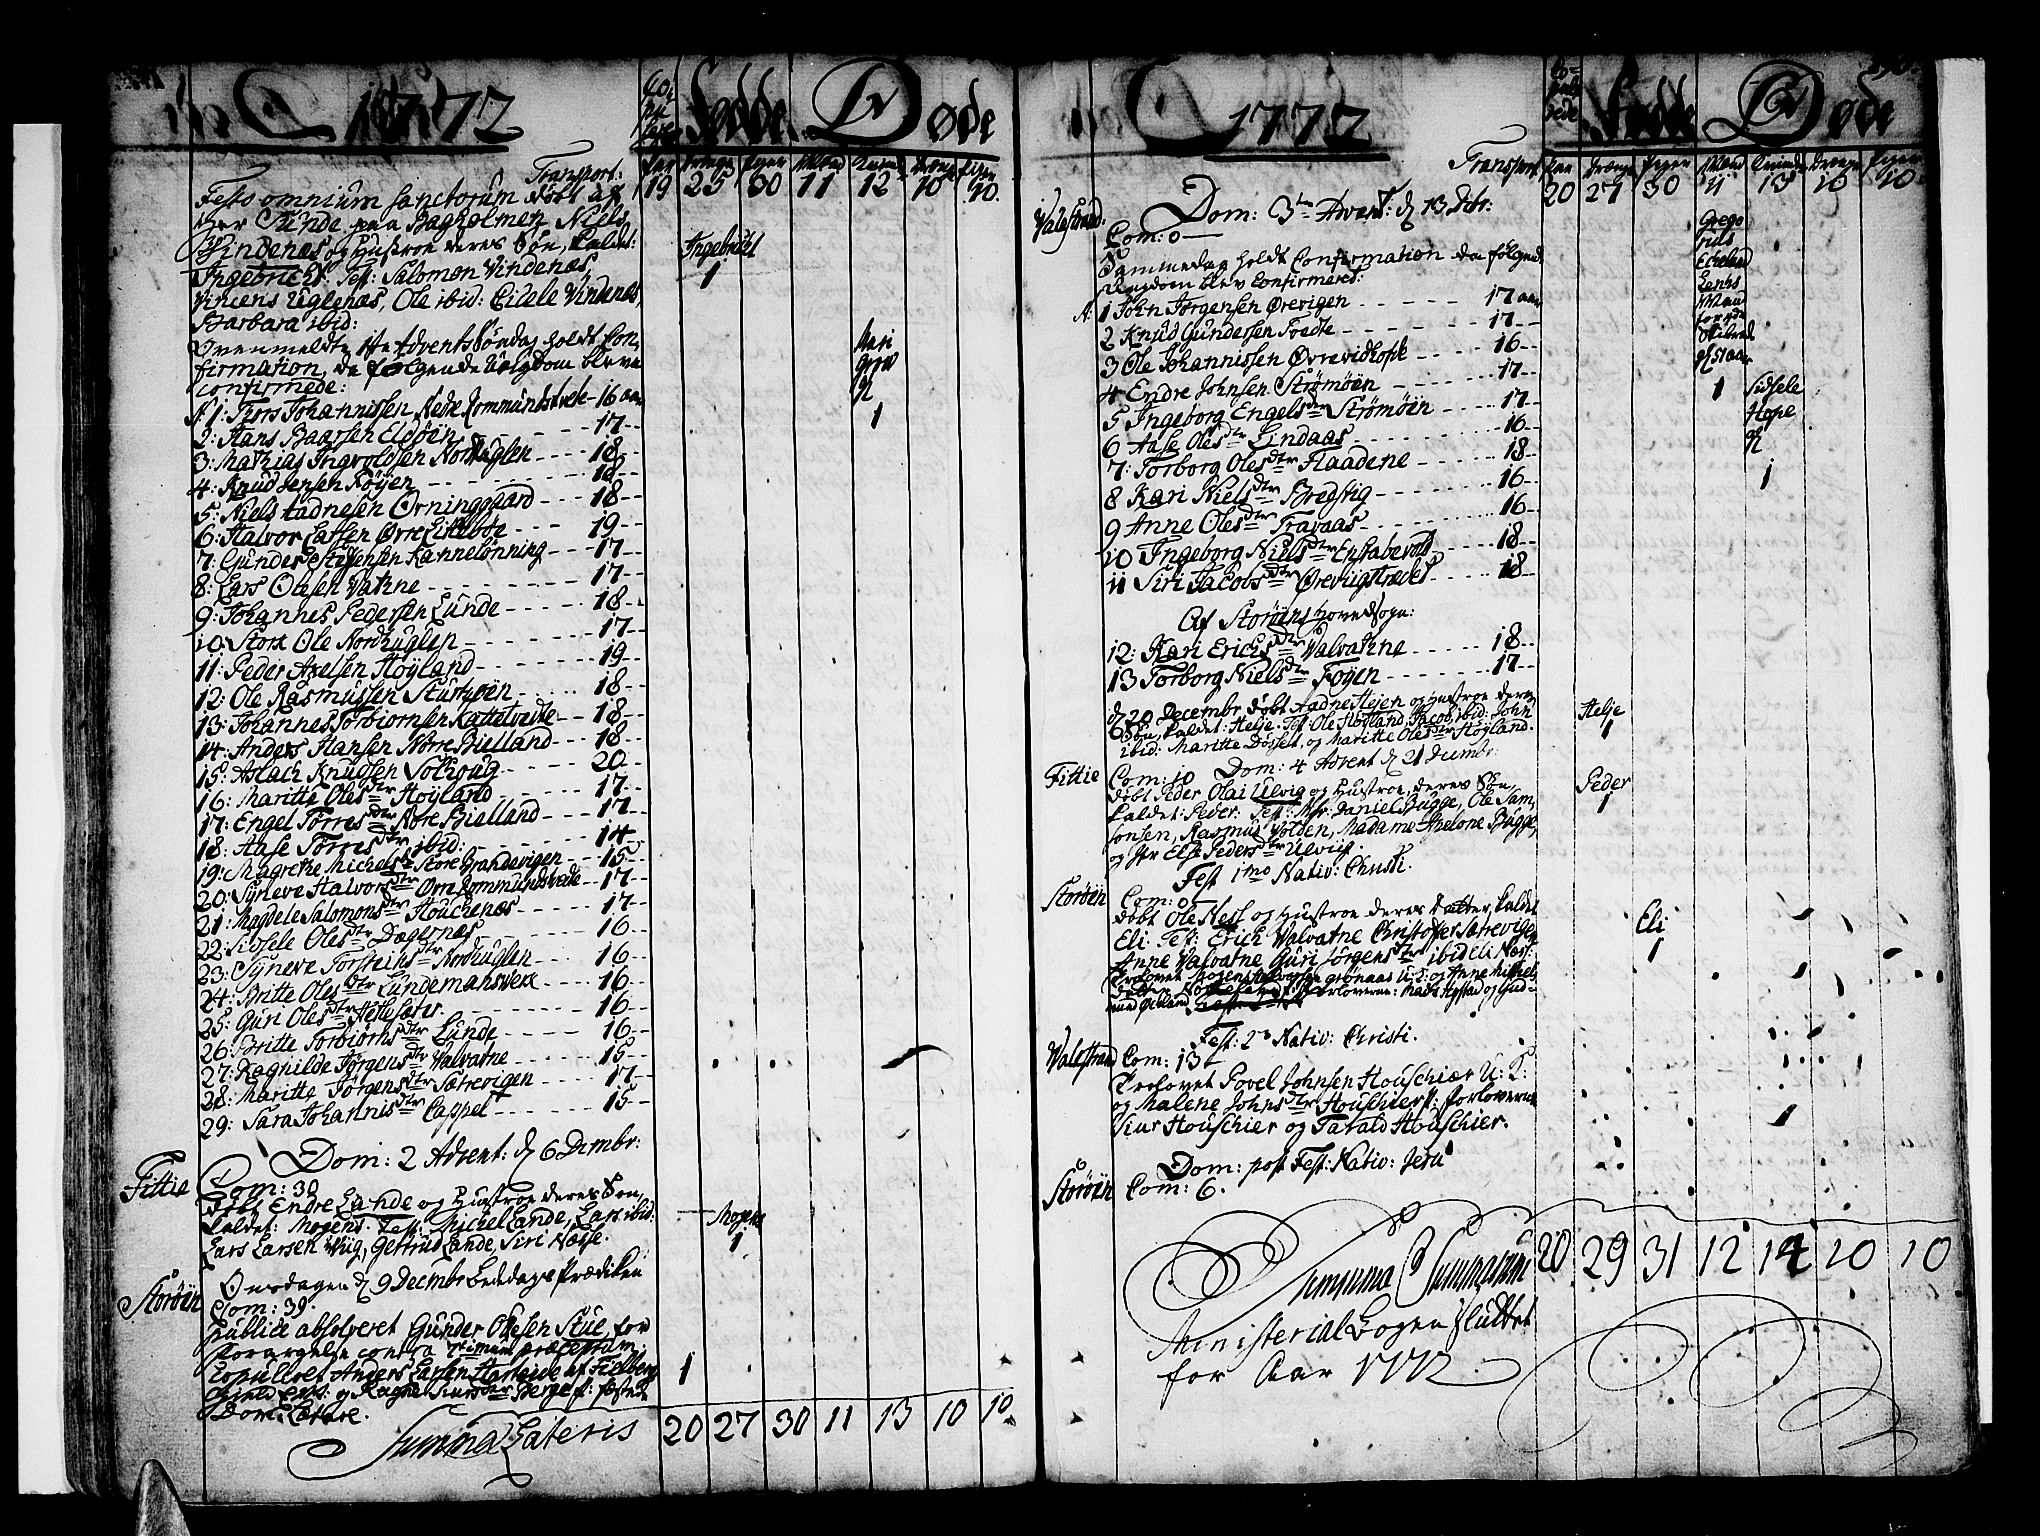 1772
Fødde
Døde
Transport:
19 25 30 11 12 10 10
Festo omnium sanctorum døbt af
Her Sunde paa Bagholmen, Niels
Vindenæs og Hustroe deres Søn, kaldet:
Ingebricht. Test: Salomon Vindenæs,
Vincens Uglenæs, Ole ibid: Cicele Vindenæs
Barbara ibid:
Ingebricht
1
Ovenmeldte 1te Advents Søndag holdt Con¬
firmation, da følgende Ungdom bleve
confirmede:
1: Tiors Johannissen Nedre Rommundstvete 16 aar
2: Hans Baarsen Eldøen 17
3: Mathias Ingvoldsen Nordhuglen 18
4: Knud Jensen Føyen 18
5: Niels Aadnesen Orninggaard 18
6: Halvor Larsen Øvre 19
7: Gunder Kannelønning 17
8: Lars Olsen Vatne 17
9: Johannes Pedersen Lunde 18
10: Store Ole Nordhuglen 17
11: Peder Axelsen Høyland 19
12: Ole Rasmussen Stustuøen 18
13: Johannes Torbiørnsen Kattetvedte 18
14: Anders Hansen Nørre Bielland 18
15: Aslach Knudsen Solhoug 20
16: Maritte Olesdtr Høyland 17
17: Engel Torresdtr Nore Bielland 17
18: Aase Torresdtr ibid: 14
19: Magrethe Michelsdtr Store Brandevigen 15
20: Synneve Halvorsdtr Øvre Rommundstvete 17
21: Magdele Salomonsdtr Houchenæs 17
22: Sidsele Olesdtr Dægernæs 16
23: Synneve Torsteinsdtr Nordhuglen 16
24: Britte Olesdtr Lundemansverk 16
25: Guri Olesdtr 16
26: Britte Torbiørnsdtr Lunde 16
27: Ragnilde Jørgensdtr Valvatne 15
28: Maritte Jørgensdtr Sætrevigen 17
29: Sara Johannisdtr Cappel 15
Mari
1
Dom: 2 Advent: d 6 Dcmbr:
Fittie
Com: 30
døbt Endre Lande og Hustroe deres Søn,
kaldet: Mogens. Test: Michel Lande, Lars ibid:
Lars Larsen Wiig, Gertrud Lande, Siri Næsse.
Mogens
1
Onsdagen d 9 Decmbr Bededags Prædiken
Storøen
Com: 39.
publice absolveret Gunder Olsen Stue for
Forargelse contra 7timum præceptum.
Copulleret Anders Larsen Hatteide af Fielberg
1
Dom: Lætare.
Summa Lateris 20 27 30 11 13 10 10
1772
Fødde
Døde
Transport
20 27 30 11 13 10 10
Valestrand:
Dom: 3tia Advent: d 13 Dcbr:
Com: 0
Sammedag holdt Confirmation da følgende
Ungdom blev Confirmeret:
1 John Jørgensen Ørevigen 17 aar
2 Knud Gundersen Tvedte 17
3 Ole Johannissen Øvrevidhopt 16
4 Endre Johnsen Strømøen 17
5 Ingeborg Engelsdtr Strømøen 17
6 Aase Olesdtr Lindaas 16
7: Torborg Olesdtr Flaadene 18
8 Kari Nielsdtr Bredvig 16
9 Anne Olesdtr Travaas 16
10 Ingeborg Nielsdtr Ersabevold 18
11 Siri Jacobsdtr Ørevigstrædet 18
Af Storøens Hovedsogn:
12: Kari Erichsdtr Valvatne 18
13 Torborg Nielsdtr Føyen 17
d 20 Decembr døbt Aadne Steien og Hustroe deres
Søn, kaldet: Helje. Test: Ole Høyland, Jacob ibid: John
ibid: Maritte Døssett, og Maritte Olesdtr Høyland.
Helje
1
Fittie
Com: 10 Dom: 4 Advent d 21 Decmbr:
døbt Peder Olai Ulvig og Hustroe, deres Søn,
kaldet: Peder: Test: Mr: Daniel Bugge, Ole Sam¬
sonsen, Rasmus Volden, Madame Abelone Bugge,
og Jfr Else Pedersdtr Ulvig.
Peder
1
Fest 1mo Nativ: Christi.
Storøen
Com: 0
døbt Ole Ness og Hustroe deres Datter, kaldet
Eli. Test: Erich Valvatne Christopher Sætrevigen
Anne Valvatne Guri Jørgensdtr ibid Eli Næss:
Eli
1
Fest: 2do Nativ: Christi.
Valestrand
Com: 13
Trolovet Povel Johnsen Houschiær U: K:
og Malene Johnsdtr Houschier P: Forloverne
Siur Houschier og Tarald Houschier.
Dom: post Fest: Nativ: Jesu
Storøen
Com: 6.
Grego
rius
Echeland
1
Sidsele
Hope
1
Summa Summarum 20 29 31 12 14 10 10
Ministerial Bogen sluttet
for Aar 1772